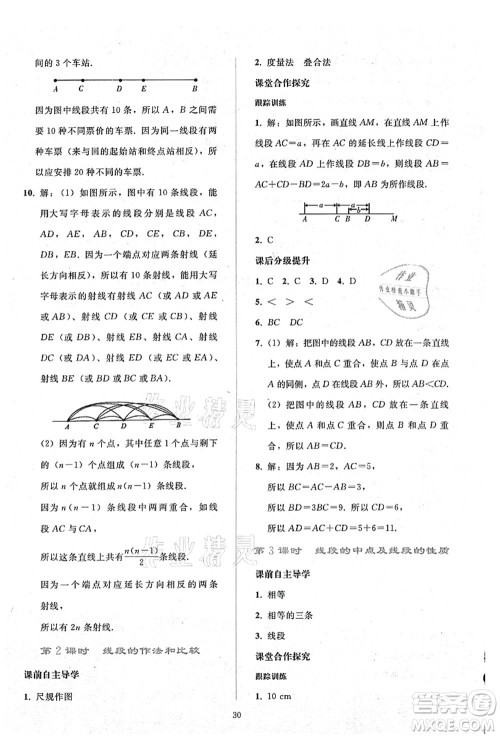 间的 3 个车站.
A C D E B
因为图中线段共有 10 条，所以 A，B 之间有
10 种不同票价的车票. 又因为同一路段有往
有返（与来回的起始站和终点站有关），所以
应安排 20 种不同的车票.
10. 解：（1）如图所示，图中有 10 条线段，能
用大写字母表示的线段分别是线段 AC，
AD，AE，AB，CD，CE，CB，DE，
DB，EB. 因为一个端点对应两条射线（延
长方向相反），所以图中有 10 条射线，能用
大写字母表示的射线分别是射线 AC（或
AD 或 AE 或 AB），射线 CD（或 CE 或
CB），射线 DE（或 DB），射线 EB，射线
CA，射线 DC（或 DA），射线 ED（或 EC
或 EA），射线 BE（或 BD 或 BC 或 BA）.
A C D E B
（2）因为有 n 个点，其中任意 1 个点与剩下
的（n－1）个点组成（n－1）条线段，
所以共有 n（n－1）条线段.
因为每两个点之间的线段重合两次，如线
段 AC 与 CA，
所以这条直线上共有 n(n－1)/2 条线段.
因为一个端点对应延长方向相反的两条射
线，
所以有 2n 条射线.
第 2 课时 线段的作法和比较
课前自主导学
1. 尺规作图
2. 度量法 叠合法
课堂合作探究
跟踪训练
1. 解：如图所示，画直线 AM，在直线 AM 上作
线段 AC＝a，在 AC 的延长线上作线段 CD＝
a，在线段 AD 上作线段 BD＝b，则线段 AB＝
AC＋CD－BD＝2a－b，即 AB 为所作线段.
a a b
A C B D M
2. C
课后分级提升
1. C 2. B 3. D 4. D
5. ＜ ＞ ＜
6. BD DC
7.（1）解：把图中的线段 AB、线段 CD 放在一条
直线上，使点 A 和点 C 重合，使点 B 与点 D 在
点 A 的同侧，点 B 在线段 CD 上，所以 AB＜CD.
（2）把图中的线段 AB、线段 CD 放在一条直线
上，使点 A 和点 C 重合，使点 B 和点 D 重合，
所以 AB＝CD.
8. 解：因为 AD＝DB，AC＝CB，
所以 BD＝3BC＝9，AC＝BC＝3，
所以 CD＝BD－BC＝9－3＝6，
所以 AD＝AC＋CD＝3＋6＝9.
第 3 课时 线段的中点及线段的性质
课前自主导学
1. 相等
2. 相等的三条
3. 线段
课堂合作探究
跟踪训练
1. 10 cm
30
作业精灵